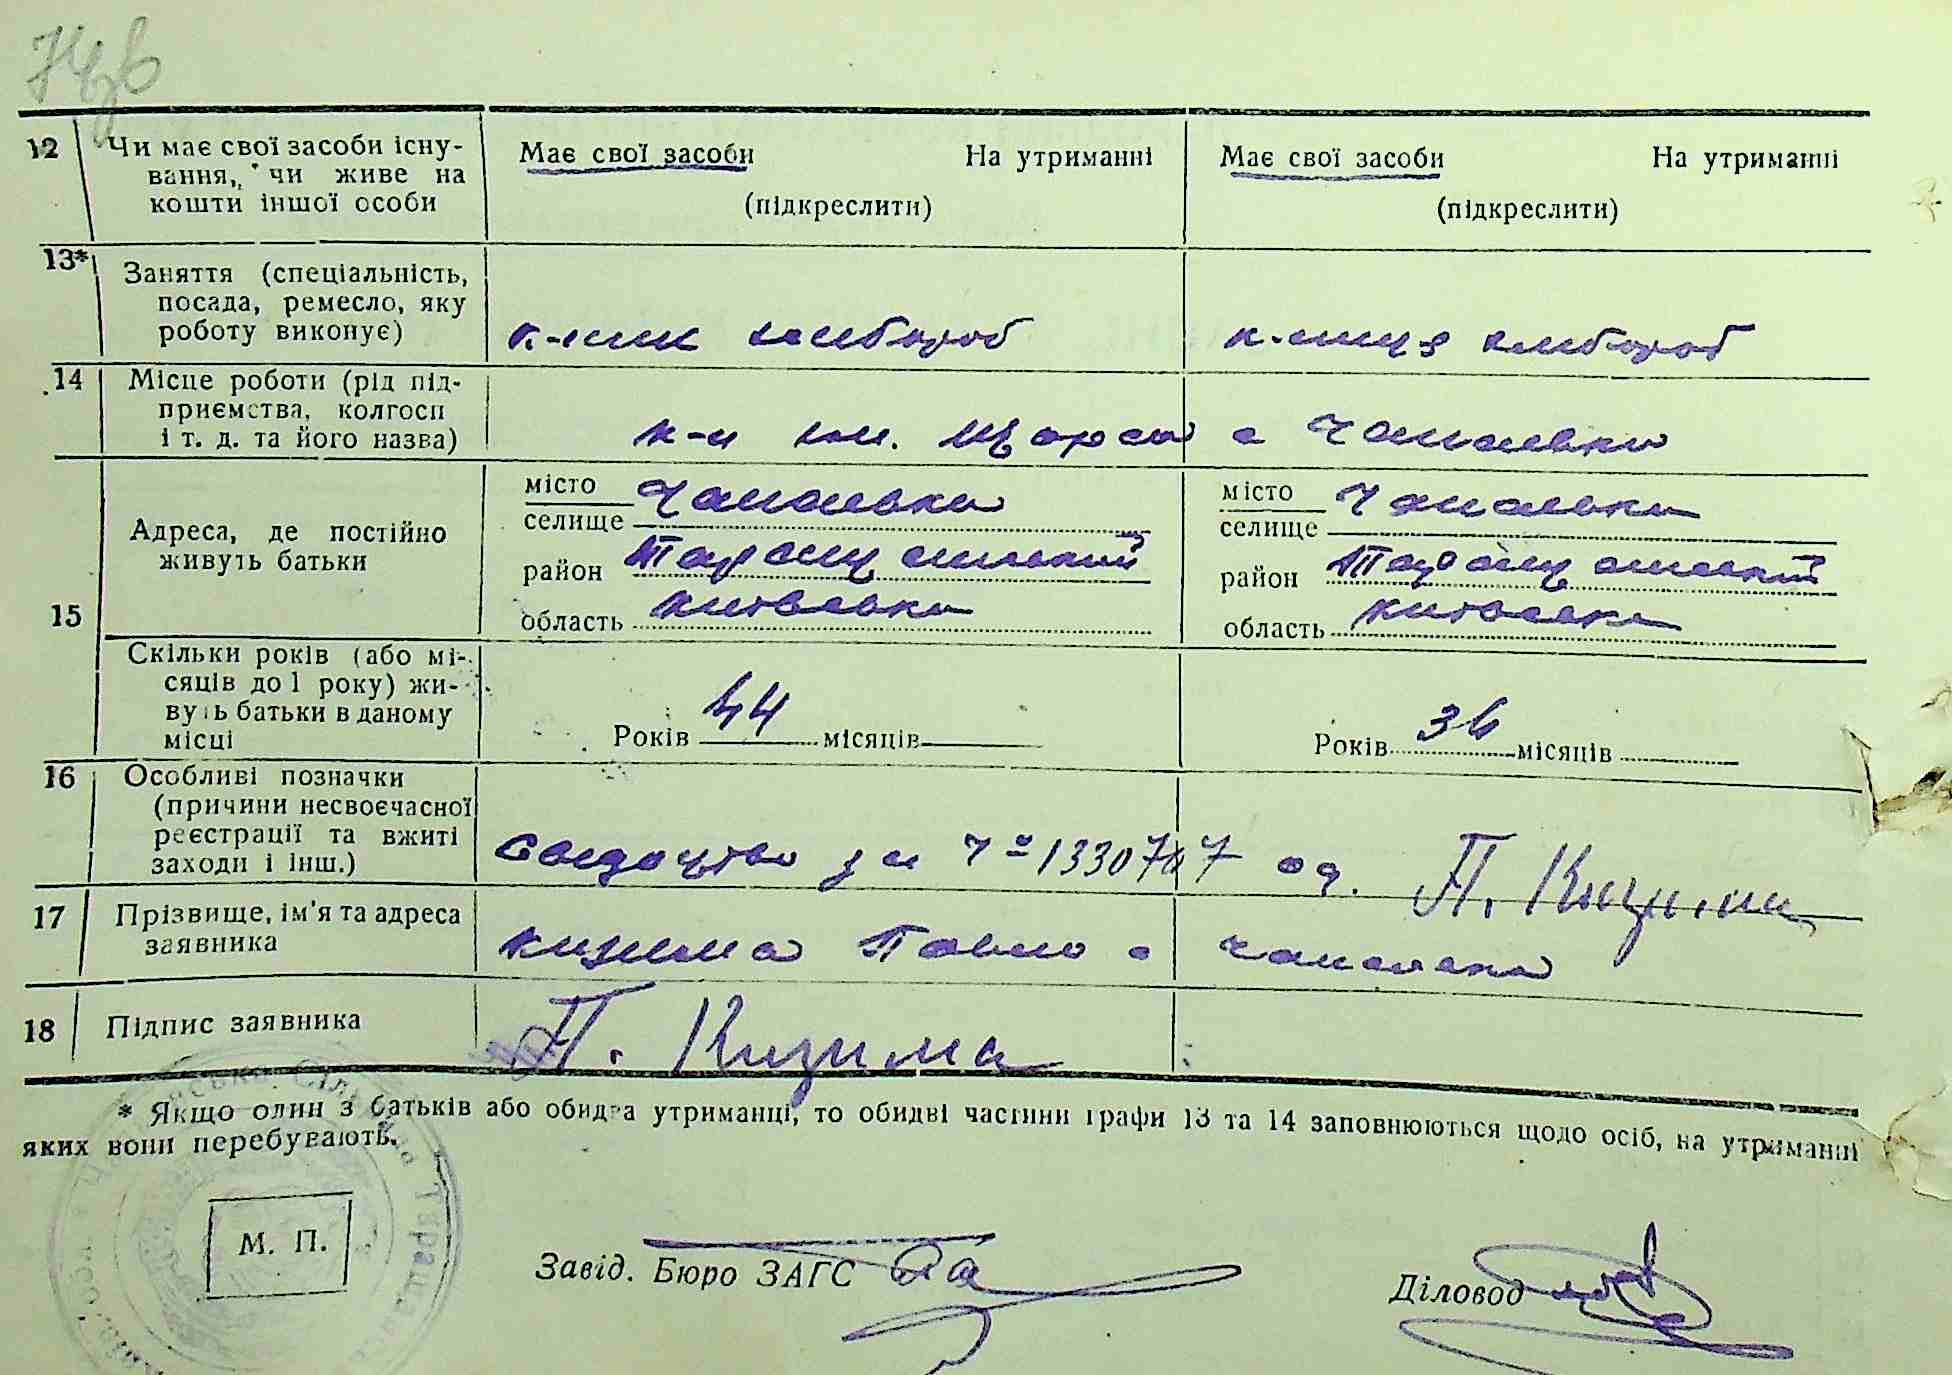 12 Чи має свої засоби існу-
вання, чи живе на
кошти іншої особи
Має свої засоби На утриманні
(підкреслити)
Має свої засоби На утриманні
(підкреслити)
13* Заняття (спеціальність,
посада, ремесло, яку
роботу виконує)
к-ник хлібороб
к-ниця хлібороб
14 Місце роботи (рід під-
приємства, колгосп
і т. д. та його назва)
к-п ім. Щорса с Чапаєвка
15
Адреса, де постійно
живуть батьки
місто
селище Чапаєвка
район Таращанський
область Київська
місто
селище Чапаєвка
район Таращанський
область Київська
Скільки років (або мі-
сяців до 1 року) жи-
вуть батьки в даному
місці
Років 44 місяців
Років 36 місяців
16 Особливі позначки
(причини несвоєчасної
реєстрації та вжиті
заходи і інш.)
Свидоцтво за 1330707 од. П. Кизима
17 Прізвище, ім'я та адреса
заявника
Кизима Павло с Чапаєвка
18 Підпис заявника
П. Кизима
* Якщо один з батьків або обидва утриманці, то обидві частини графи 13 та 14 заповнюються щодо осіб, на утриманні
яких вони перебувають.
М. П.
Завід. Бюро ЗАГС
Діловод